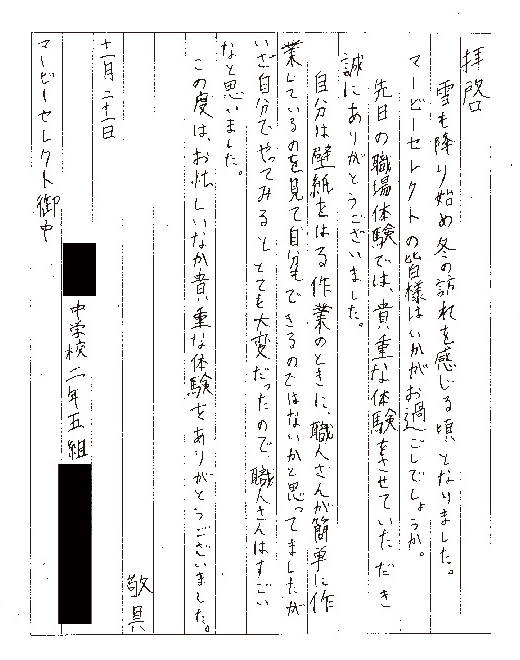 拝啓
雪も降り始め冬の訪れを感じる頃となりました。
マービーセレクトの皆様はいかがお過ごしでしょうか。
先日の職場体験では、貴重な体験をさせていただき
誠にありがとうございました。
自分は壁紙をはる作業のときに、職人さんが簡単に作
業しているのを見て自分もできるのではないかと思ってましたが
いざ自分でやってみるととても大変だったので職人さんはすごい
なと思いました。
この度は、お忙しいなか貴重な体験をありがとうございました。
敬具
十一月二十一日
中学校二年五組
マービーセレクト御中